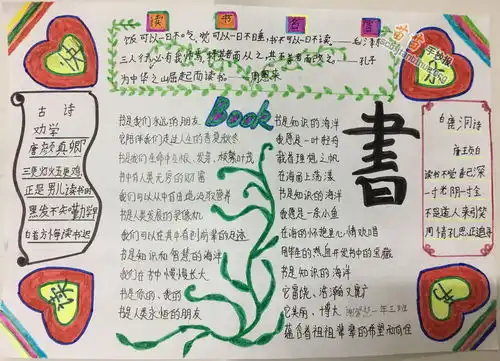 读书名言
饭可以一日不吃,觉可以一日不睡,书不可以一日不读——毛泽东
三人行,必有我师焉,择其善者而从之,其不善者而改之。——孔子
为中华之崛起而读书——周恩来
苗苗手抄报
快
古诗
劝学
唐 颜真卿
三更灯火五更鸡
正是男儿读书时
黑发不知勤学早
白首方悔读书迟
Book
书是我们永远的朋友
它陪伴我们走过人生的春夏秋冬
书中有人类无穷的财富
我们可以从中自由地汲取营养
我们可以在其中看到前辈的足迹
书是知识和智慧的海洋
我们在书中慢慢长大
书是你的、我的
书是人类永恒的朋友
书是知识的海洋
我愿是一叶轻舟
载着理想之帆
在海面上荡漾
书是知识的海洋
我愿是一条小鱼
书是知识的海洋
它美丽、博大
蕴含着祖祖辈辈的希望和向往
一年三班
書
白鹿洞诗
唐 王贞白
读书不觉春已深
一寸光阴一寸金
不是道人来引笑
周情孔思正追寻